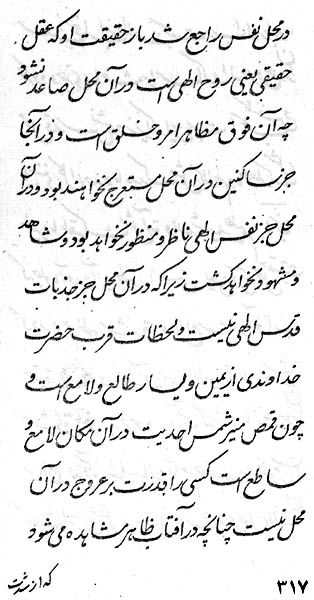 در محل نفس راجع شد باز حقیقت او که عقل
حقیقی یعنی روح الهی است در آن محل صاعد نشود
چه آن فوق مظاهر امر و خلق است و در آنجا
جز ساکنین در آن محل مستعرج نخواهند بود و در آن
محل جز نفس الهی ناظر و منظور نخواهد بود و شاهد
و مشهود نخواهد گشت زیرا که در آن محل جز جذبات
قدس الهی نیست و لحظات قرب حضرت
خداوندی از یمین و یسار طالع و لامع است و
چون قمص منیر شمس احدیت در آن مکان لامع و
ساطع است کسی را قدرت بر عروج در آن
محل نیست چنانچه در آفتاب ظاهر مشاهده می شود
که از شدت
٣١٧